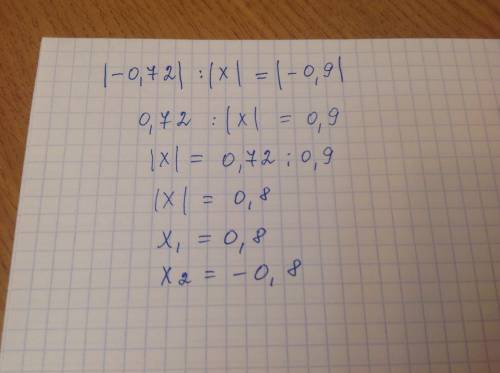 |-0,72| : |x| = |-0,9|
0,72 : |x| = 0,9
|x| = 0,72 : 0,9
|x| = 0,8
x₁ = 0,8
x₂ = -0,8